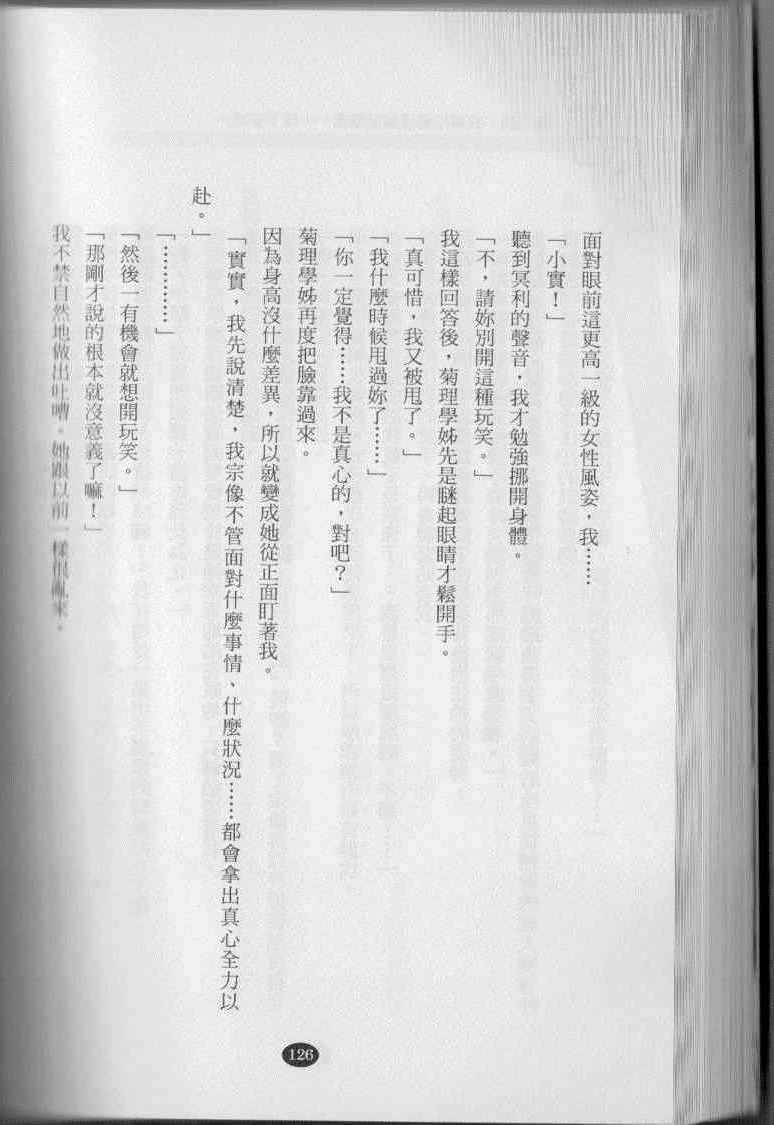 面對眼前這更高一級的女性風姿，我……
「小實！」
聽到冥利的聲音，我才勉強挪開身體。
「不，請妳別開這種玩笑。」
我這樣回答後，菊理學姊先是瞇起眼睛才鬆開手。
「真可惜，我又被甩了。」
「我什麼時候甩過妳了……」
「你一定覺得……我不是真心的，對吧？」
菊理學姊再度把臉靠過來。
因為身高沒什麼差異，所以就變成她從正面盯著我。
「實實，我先說清楚，我宗像不管面對什麼事情、什麼狀況……都會拿出真心全力以
赴。」
「…………」
「然後一有機會就想開玩笑。」
「那剛才說的根本就沒意義了嘛！」
我不禁自然地做出吐嘈。她跟以前一樣很亂來。
126